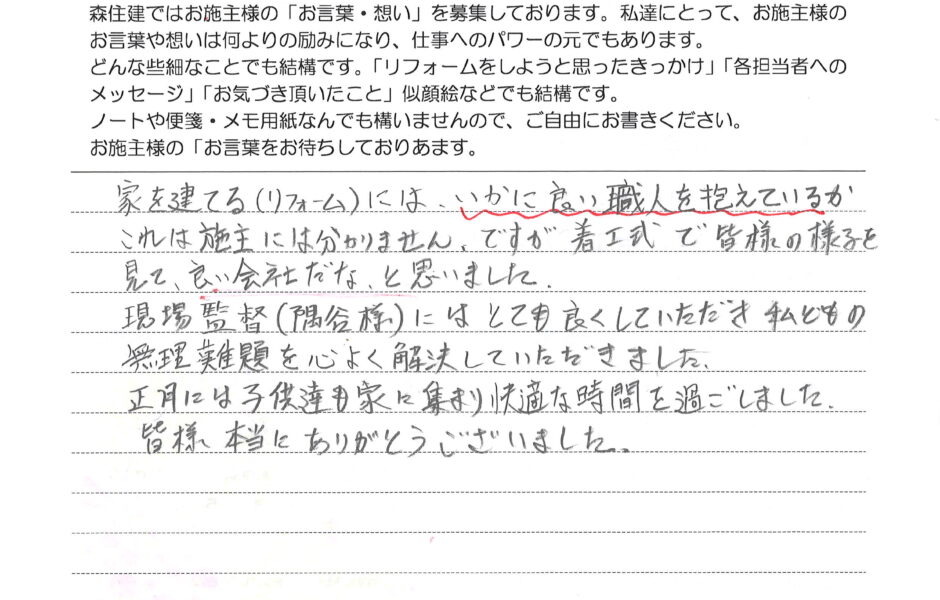 森住建ではお施主様の「お言葉・想い」を募集しております。私達にとって、お施主様の
お言葉や想いは何よりの励みになり、仕事へのパワーの元でもあります。
どんな些細なことでも結構です。「リフォームをしようと思ったきっかけ」「各担当者への
メッセージ」「お気づき頂いたこと」似顔絵などでも結構です。
ノートや便箋・メモ用紙なんでも構いませんので、ご自由にお書きください。
お施主様の「お言葉をお待ちしておりあます。
家を建てる(リフォーム)には、いかに良い職人を抱えているか
これは施主には分かりません、ですが着工式で皆様の様子を
見て、良い会社だな、と思いました。
現場監督(隅谷様)にはとても良くしていただき私どもの
無理難題を心よく解決していただきました。
正月には子供達も家に集まり快適な時間を過ごしました。
皆様、本当にありがとうございました。